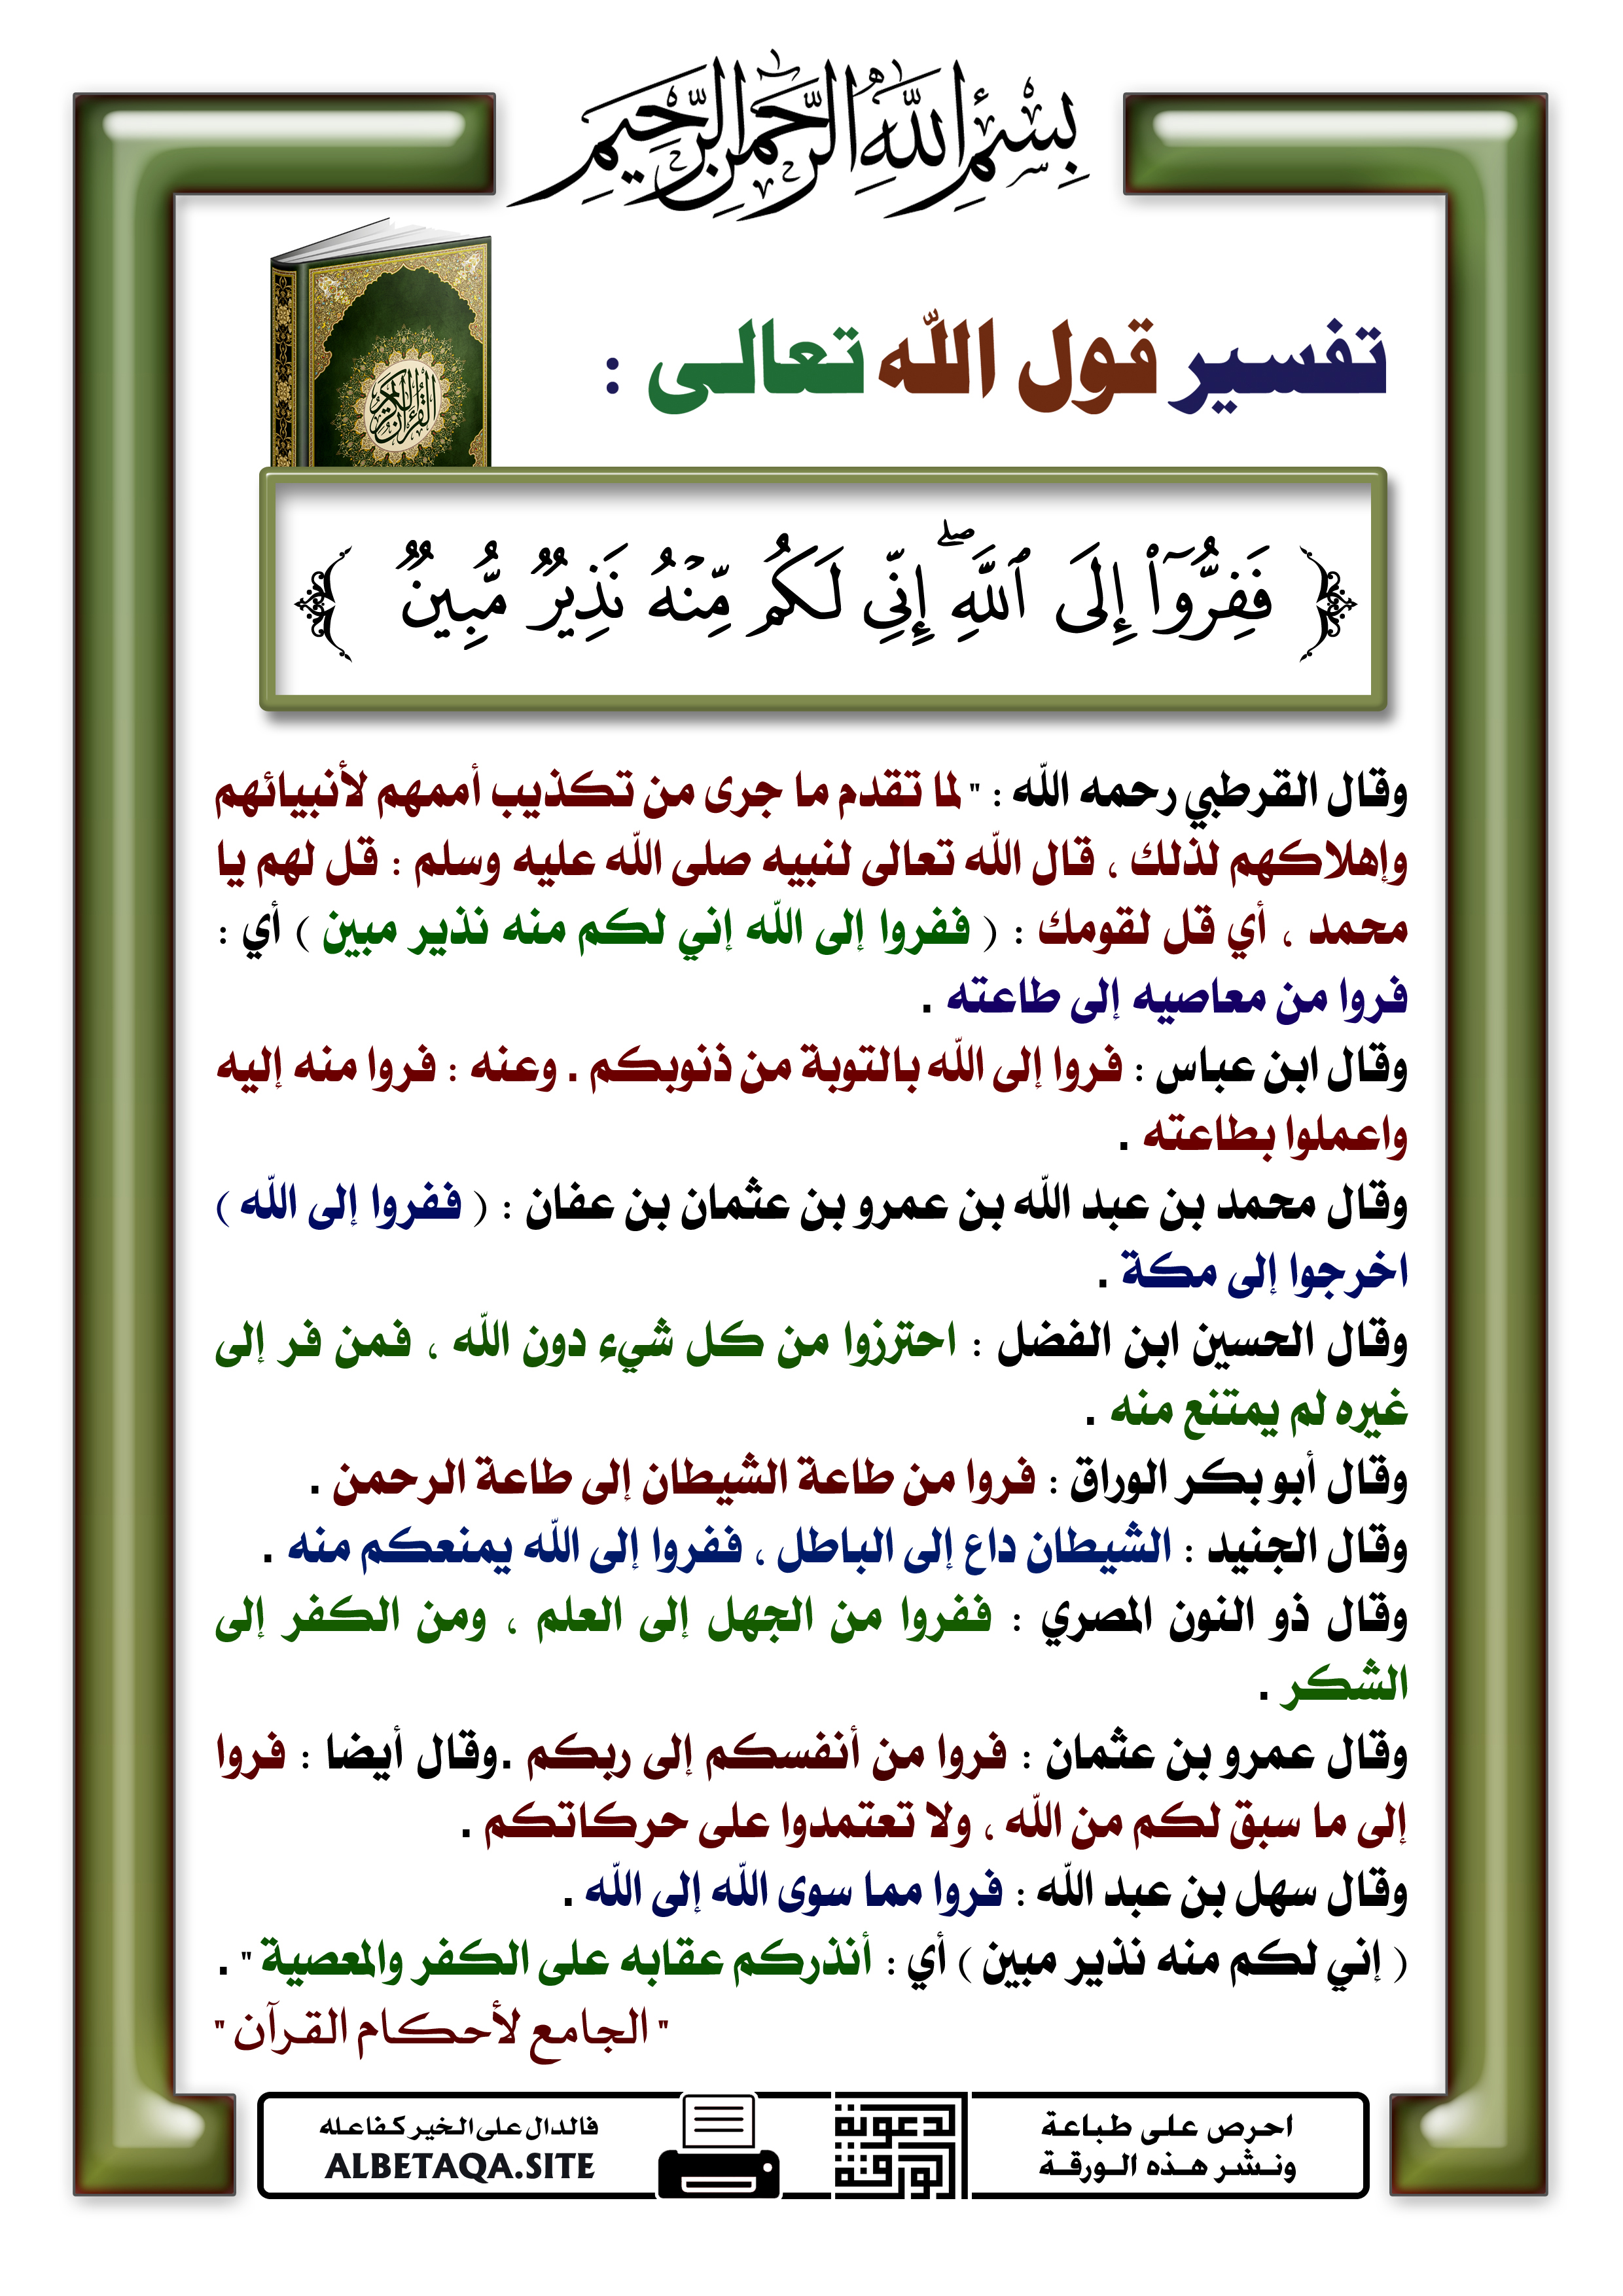 بِسْمِ اللَّهِ الرَّحْمَٰنِ الرَّحِيمِ
القرآن الكريم
تفسير قول الله تعالى :
﴿ فَفِرُّوٓا۟ إِلَى ٱللَّهِ ۖ إِنِّى لَكُم مِّنْهُ نَذِيرٌ مُّبِينٌ ﴾
وقال القرطبي رحمه الله : " لما تقدم ما جرى من تكذيب أممهم لأنبيائهم
وإهلاكهم لذلك ، قال الله تعالى لنبيه صلى الله عليه وسلم : قل لهم يا
محمد ، أي قل لقومك : ( ففروا إلى الله إني لكم منه نذير مبين ) أي :
فروا من معاصيه إلى طاعته .
وقال ابن عباس : فروا إلى الله بالتوبة من ذنوبكم . وعنه : فروا منه إليه
واعملوا بطاعته .
وقال محمد بن عبد الله بن عمرو بن عثمان بن عفان : ( ففروا إلى الله )
اخرجوا إلى مكة .
وقال الحسين ابن الفضل : احترزوا من كل شيء دون الله ، فمن فر إلى
غيره لم يمتنع منه .
وقال أبو بكر الوراق : فروا من طاعة الشيطان إلى طاعة الرحمن .
وقال الجنيد : الشيطان داع إلى الباطل ، ففروا إلى الله يمنعكم منه .
وقال ذو النون المصري : ففروا من الجهل إلى العلم ، ومن الكفر إلى
الشكر .
وقال عمرو بن عثمان : فروا من أنفسكم إلى ربكم .وقال أيضا : فروا
إلى ما سبق لكم من الله ، ولا تعتمدوا على حركاتكم .
وقال سهل بن عبد الله : فروا مما سوى الله إلى الله .
( إني لكم منه نذير مبين ) أي : أنذركم عقابه على الكفر والمعصية " .
" الجامع لأحكام القرآن "
احرص على طباعة
ونشر هذه الورقة
الدعوية
الورقة
فالدال على الخير كفاعله
ALBETAQA.SITE